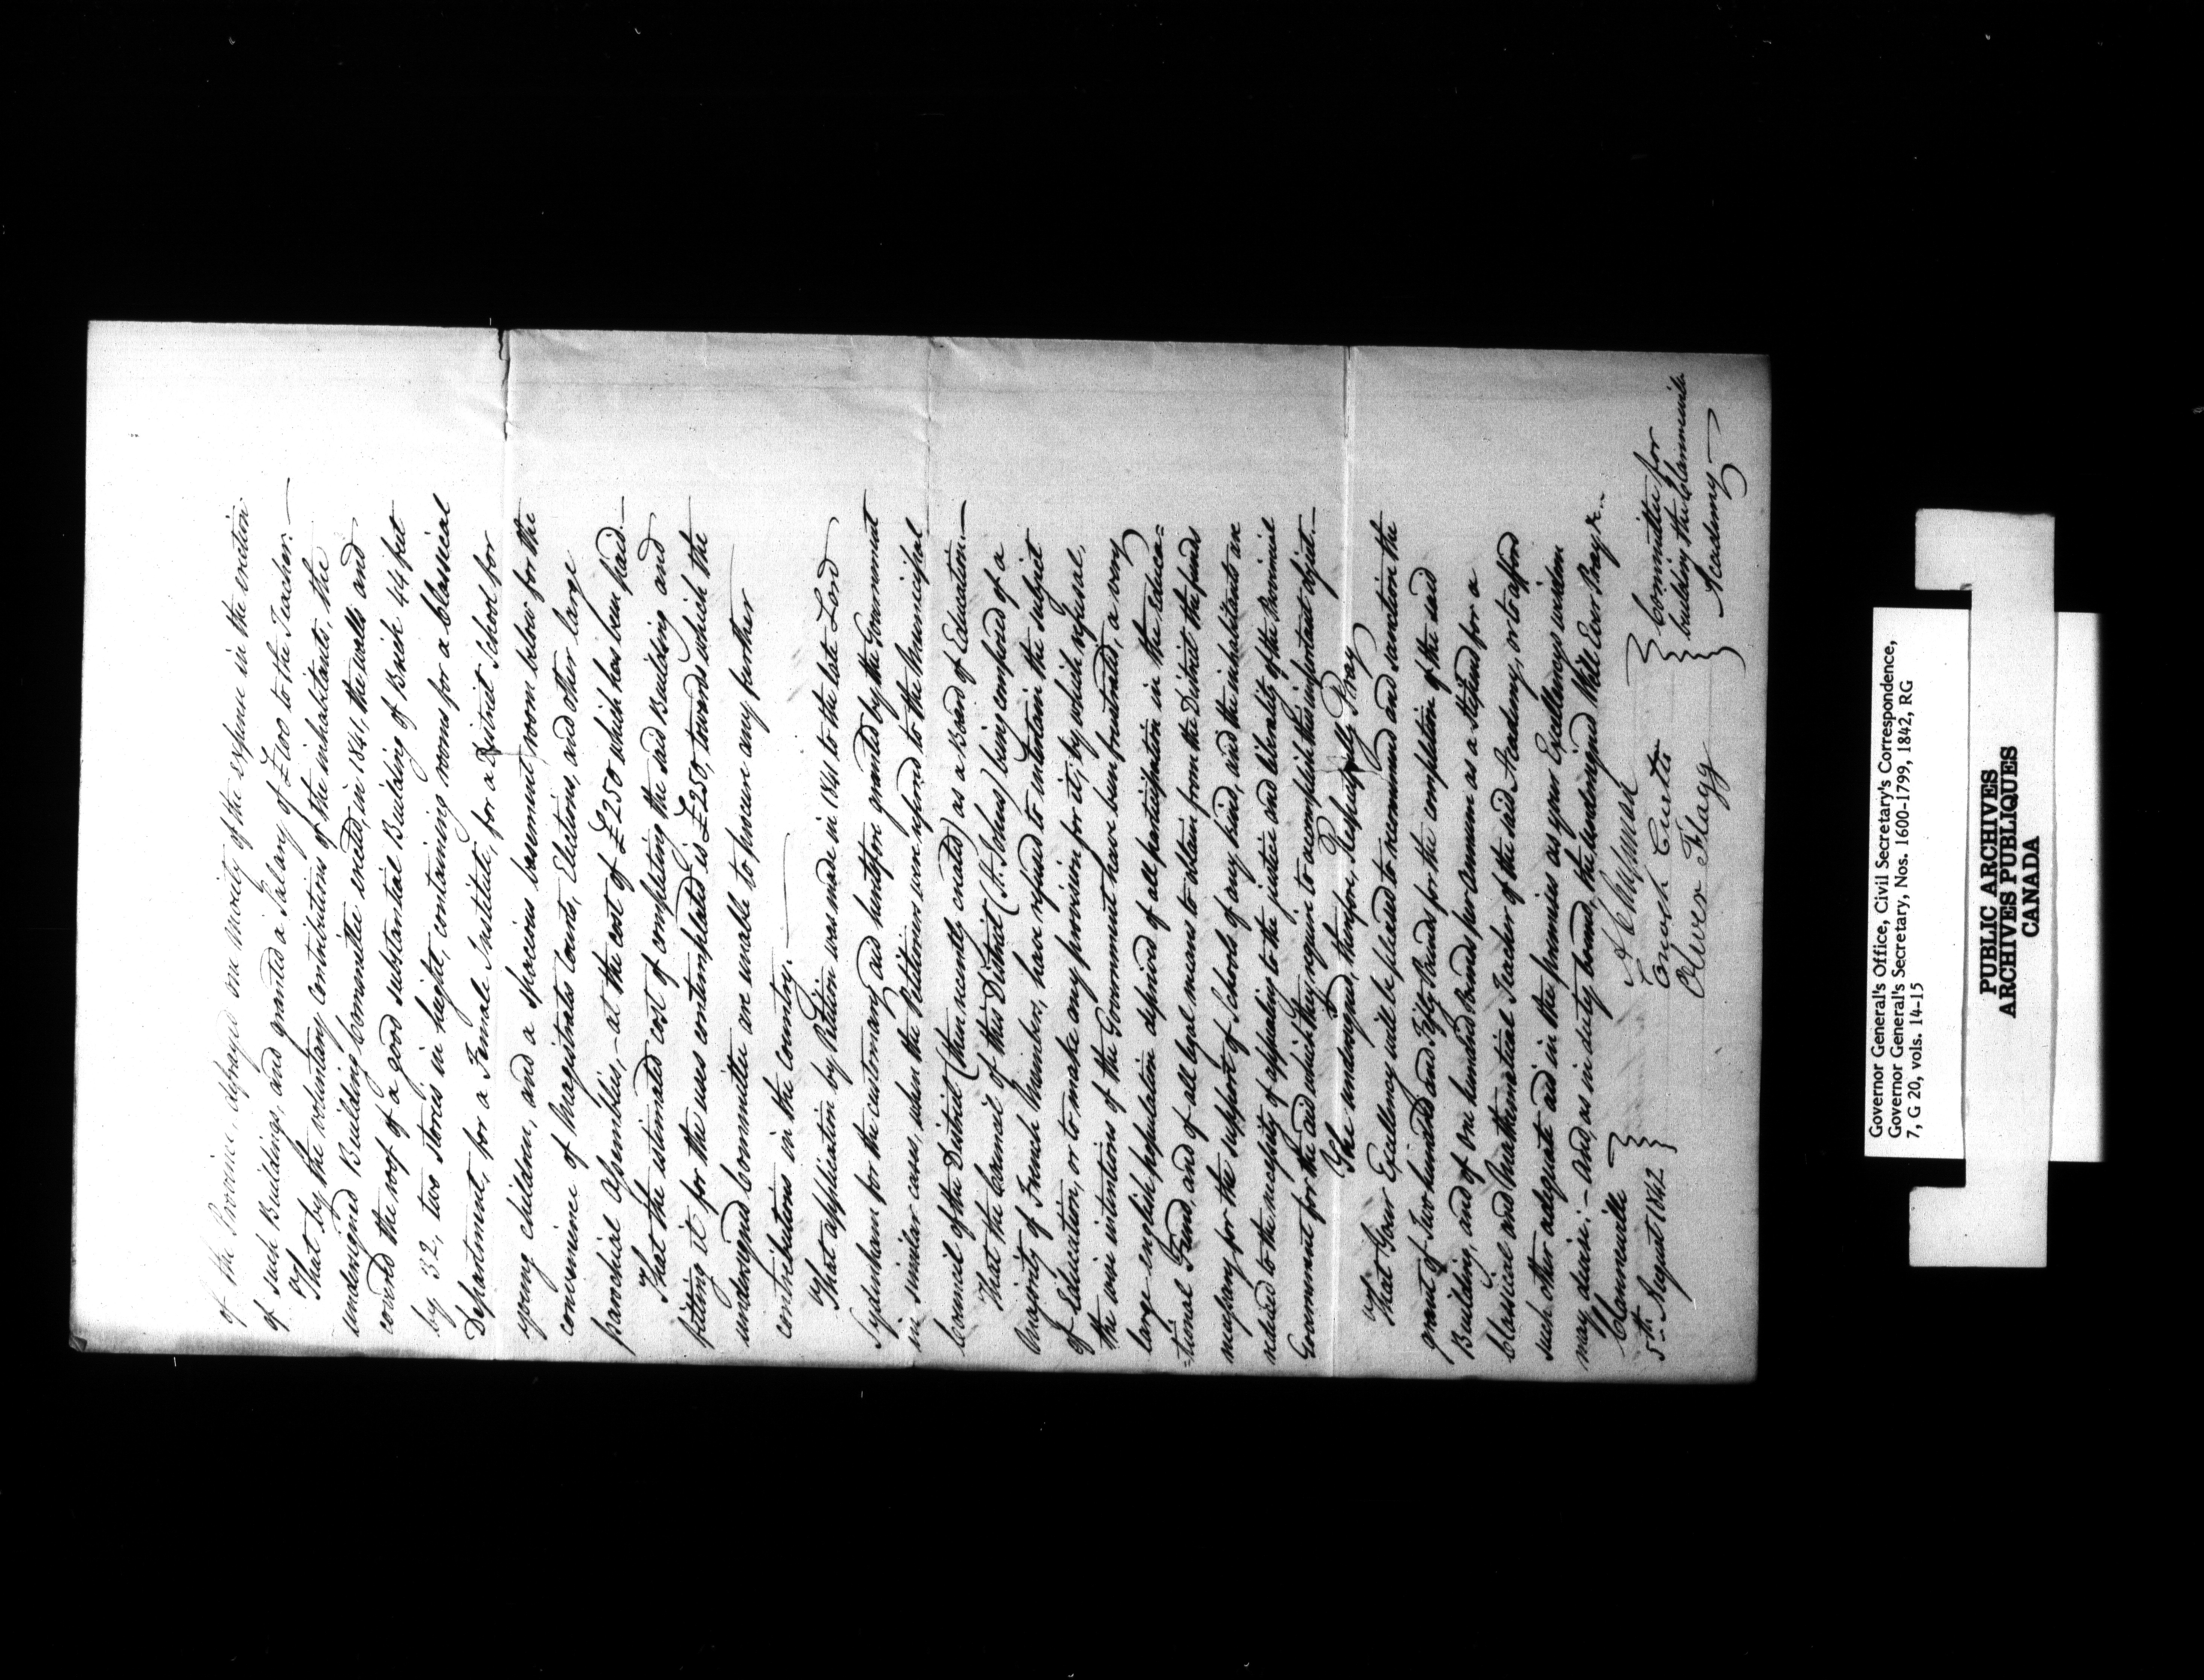 of the Province, defrayed one moiety of the expense in the erection
of such Buildings, and granted a Salary of £100 to the Teacher.—
That by the voluntary contributions of the inhabitants, the
undersigned Building Committee erected, in 1841, the walls and
covered the roof of a good substantial Building of Brick 44 feet
by 32, two stories in height, containing rooms for a Classical
Department, for a Female Institute, for a District School for
young children, and a spacious basement room below for the
convenience of Magistrates Courts, Elections, and other large
parochial assemblies,—at the cost of £250 which has been paid.—
That the estimated cost of completing the said Building and
fitting it for the uses contemplated is £250, towards which the
undersigned Committee are unable to procure any further
contributions in the country.—
That application by Petition was made in 1841 to the late Lord
Sydenham for the customary aid heretofore granted by the Government
in similar cases, when the Petitioners were referred to the Municipal
Council of the District (then recently created) as a Board of Education.—
That the Council of this District (St. Johns) being composed of a
Majority of French Members, have refused to entertain the subject
of Education, or to make any provision for it; by which refusal,
the wise intentions of the Government have been frustrated, a very
large english population deprived of all participation in the Educa=
=tional Fund, and of all legal means to obtain from the District the funds
necessary for the support of Schools of any kind, and the inhabitants are
reduced to the necessity of appealing to the justice and liberality of the Provincial
Government for the aid which they require to accomplish this important object.—
The undersigned, therefore, Respectfully Pray
That Your Excellency will be pleased to recommend and sanction the
grant of Two hundred and Fifty Pounds for the completion of the said
Building, and of One hundred Pounds per Annum as a Stipend for a
Classical and Mathematical Teacher of the said Academy, or to afford
such other adequate aid in the premises as your Excellency's wisdom
may devise:—And, as in duty bound, the undersigned Will Ever Pray &c..
Clarenceville
5th August 1842
Enoch Curtis
Oliver Flagg
Committee for
building the Clarenceville
Academy
Governor General's Office, Civil Secretary's Correspondence,
Governor General's Secretary, Nos. 1600-1799, 1842, RG
7, G 20, vols. 14-15
PUBLIC ARCHIVES
ARCHIVES PUBLIQUES
CANADA